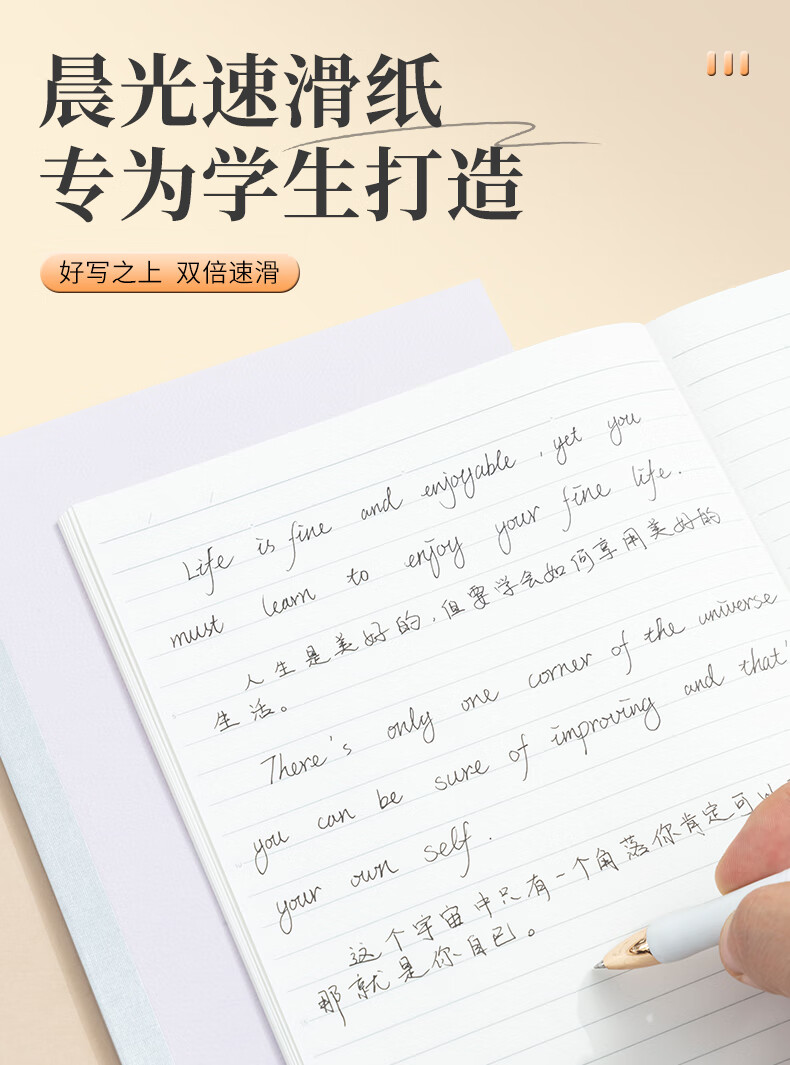 晨光速滑纸
专为学生打造
好写之上 双倍速滑
Life is fine and enjoyable , yet you
must learn to enjoy your fine life .
人生是美好的，但要学会如何享用美好的
生活。
There's only one corner of the universe
you can be sure of improving and that'
your own self .
这个宇宙中只有一个角落你肯定可以
那就是你自己。